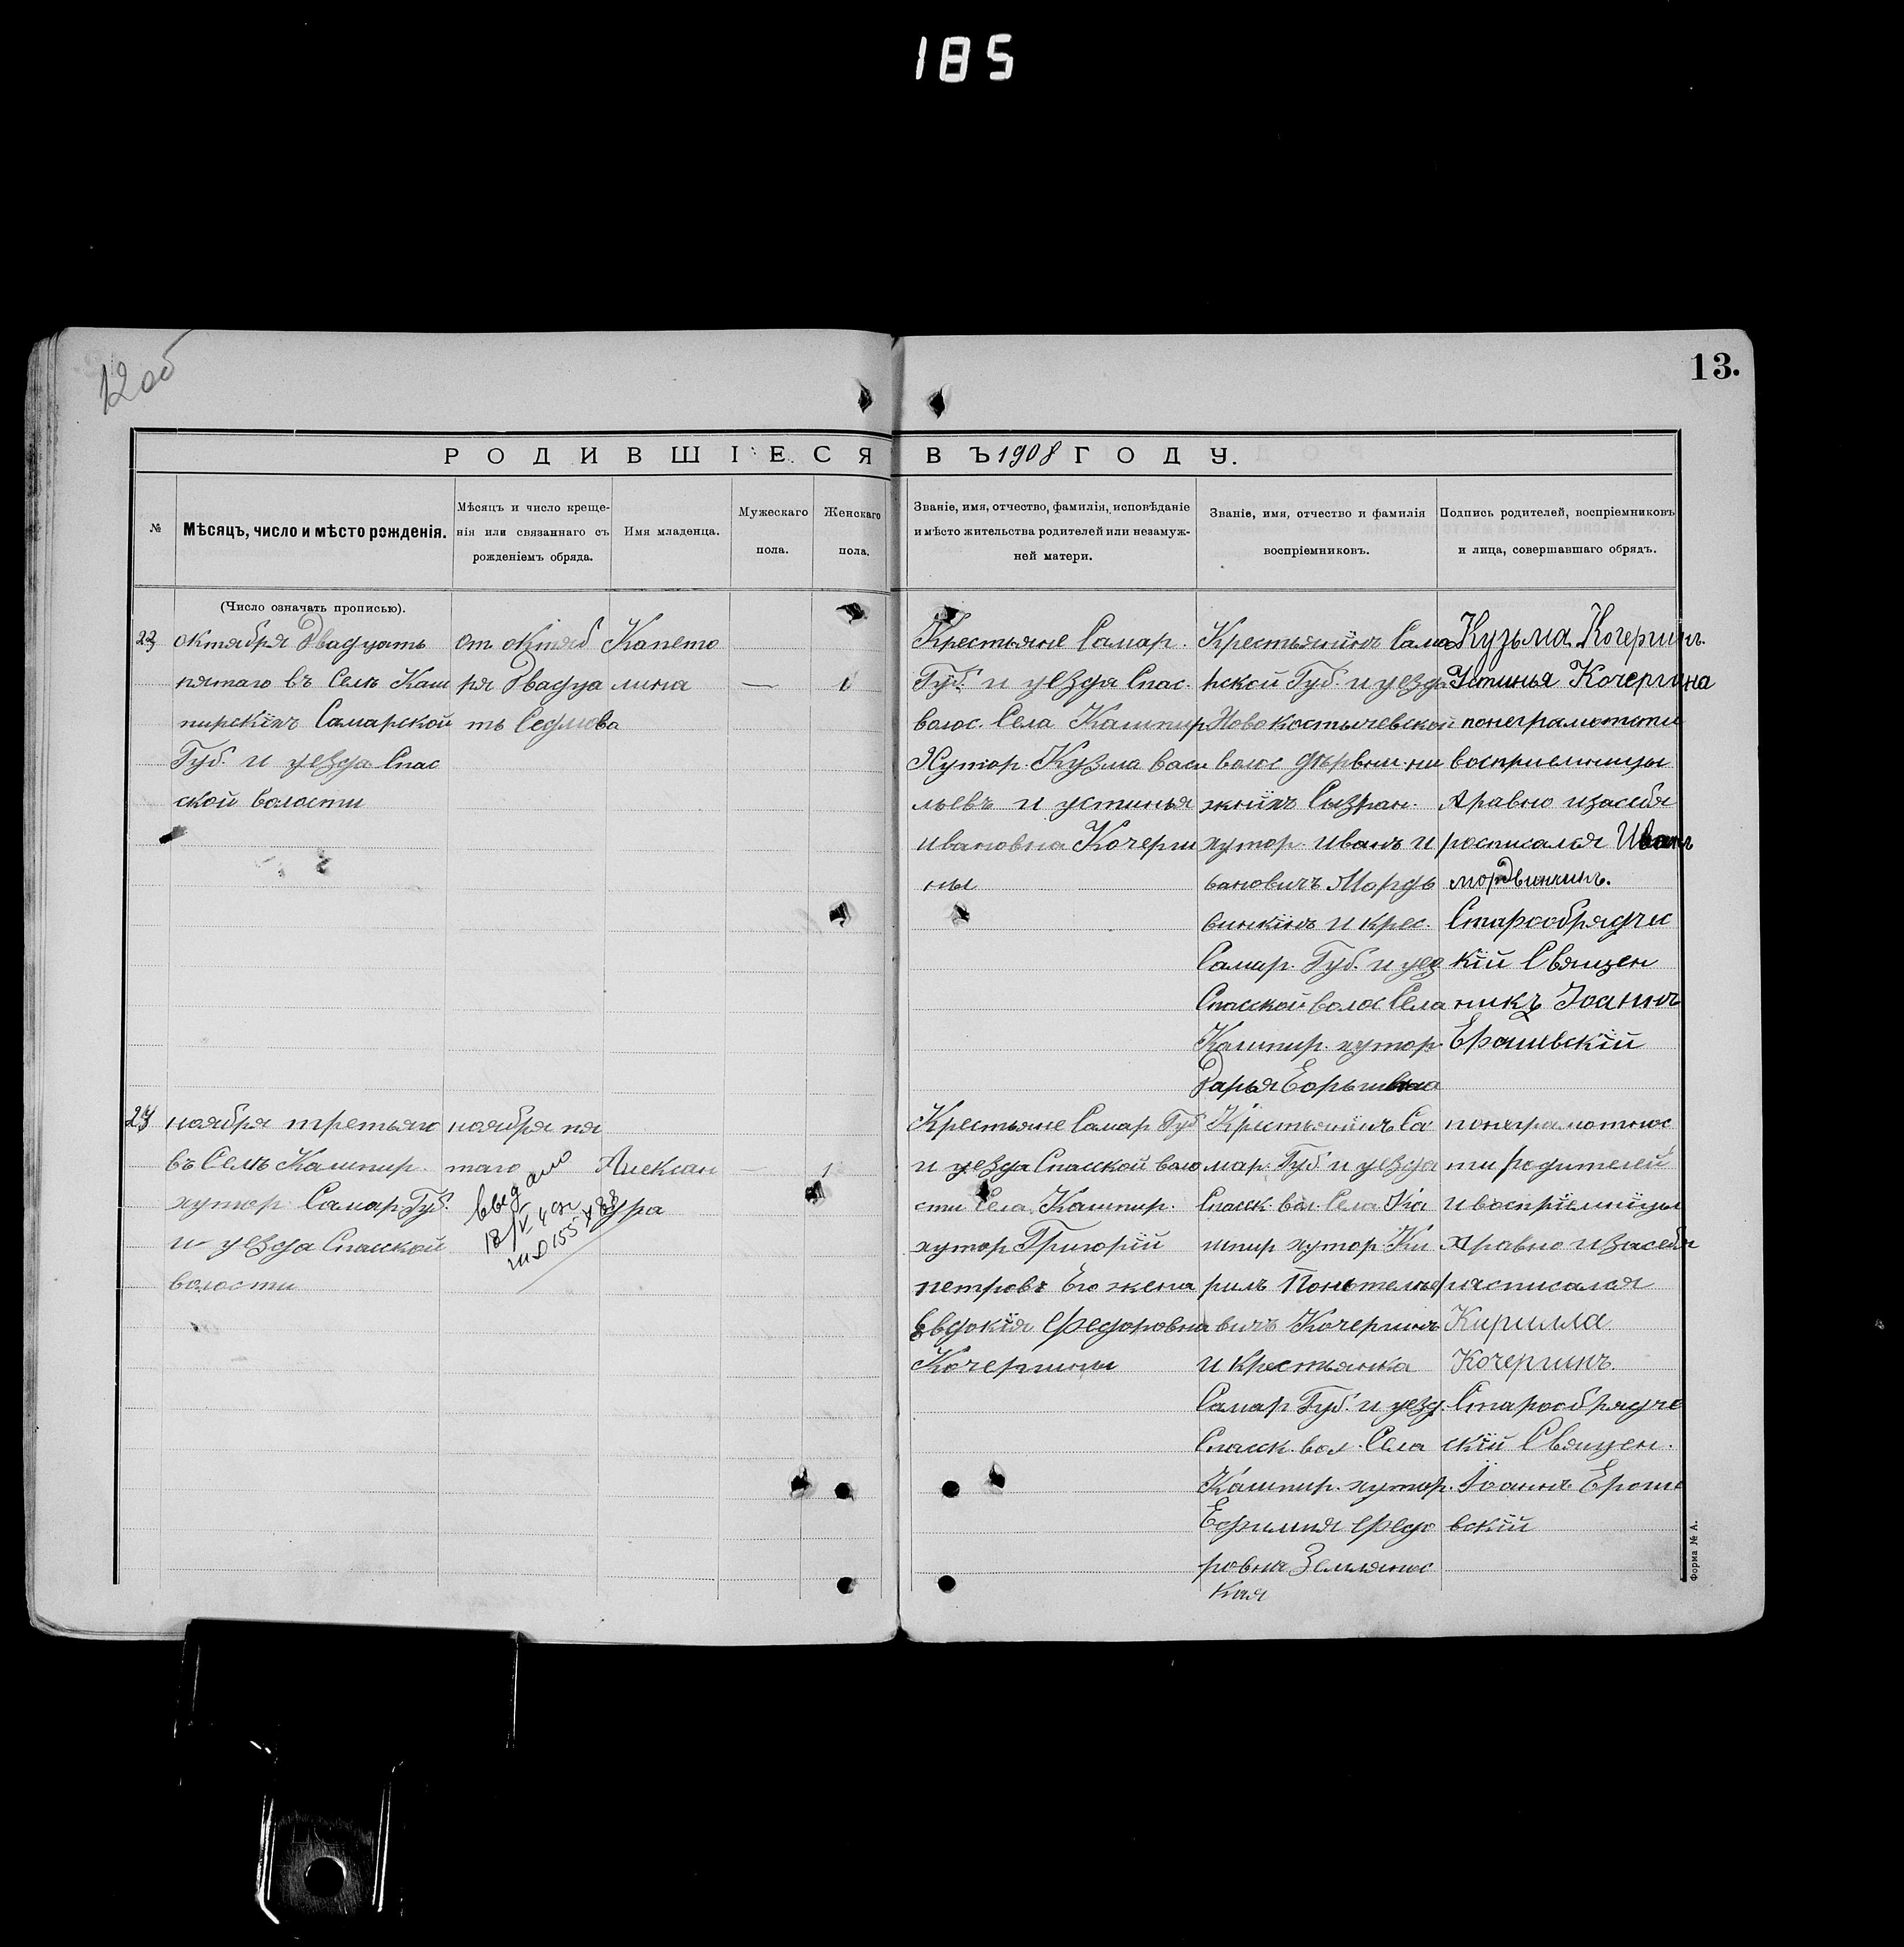 185
12 об
13.
РОДИВШІЕСЯ ВЪ 1908 ГОДУ.
№
Мѣсяцъ, число и мѣсто рожденія.
Мѣсяцъ и число креще-
нія или связаннаго съ
рожденіемъ обряда.
Имя младенца.
Мужескаго
пола.
Женскаго
пола.
Званіе, имя, отчество, фамилія, исповѣданіе
и мѣсто жительства родителей или незамуж-
ней матери.
Званіе, имя, отчество и фамилія
воспріемниковъ.
Подпись родителей, воспріемниковъ
и лица, совершавшаго обрядъ.
(Число означать прописью).
23
октября Двадцать
пятаго въ Селѣ Каш
пирскiхъ Самарской
Губ. и уезда Спас
ской волости
от октяб
ря Двадца
ть Седмова
Капето
лина
—
1
Крестьяне Самар.
Губ. и уезда Спас.
волос. Села Кашпир
Хутор. Кузма васи
льевъ и устинья
ивановна Кочерги
ны
Крестьянiнъ Сама
рской Губ. и уезда
Новокостычевской
волос дѣрвни ни
жнiхъ Сызран.
хутор. иванъ и
вановичъ Мордь
винкiнъ и крес.
Самар. Губ. и уез
Спасской волос Села
Кашпир. хутор.
Дарья Егорьивна
Кузьма Кочергинъ.
Устинья Кочергина
понеграмотсти
восприемницы
Аравно изасебя
росписался Иванъ
мордвинкинъ.
Старообрядчи
кій Священ
никъ Іоаннъ
Ерошевскій
24
ноября третьяго
въ Селѣ Кашпир.
хутор Самар Губ.
и уезда Спасской
волости
ноября пя
таго
Выдано
18/V 40г
Алексан
дра
—
1
Крестьяне Самар Губ
и уезда Спасской воло
сти Села, Кашпир.
хутор Григорiй
петровъ Его жена
Евдокiя Федоровна
Кочергины
Крестьянiнъ Са
мар. Губ. и уезда
Спасск вол. Села Ка
шпир хутор Ки
рилъ Понътелѣе
вичъ Кочергинъ
и Крестьянка
Самар Губ. и уезд.
Спасск. вол. Села
Кашпир. хутор.
Ефимия Федо
ровна Землянос
кая
понеграмотнос
ти родителей
и восприемнiцы
Аравно изасебя
расписался
Кирилла
Кочергинъ.
Старообрядче
скiй Священ.
Іоаннъ Ероше
вскiй
Форма № А.